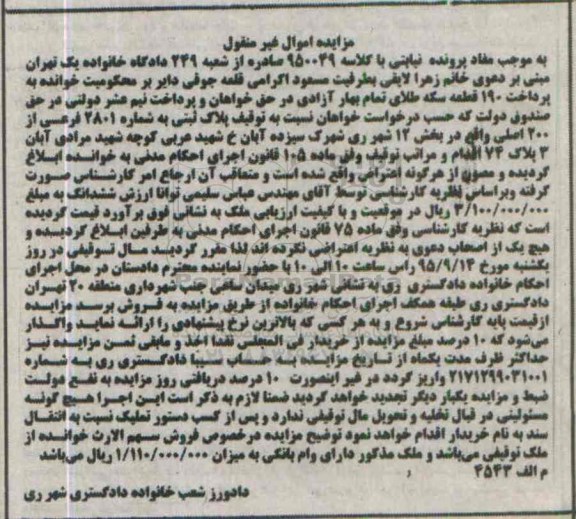 مزایده اموال غیر منقول
به موجب مفاد پرونده نیابتی با کلاسه ۹۵۰۰۴۹ صادره از شعبه ۲۴۹ دادگاه خانواده یک تهران
مبنی بر دعوی خانم زهرا لایقی بطرفیت مسعود اکرامی قلعه جوقی دایر بر محکومیت خوانده به
پرداخت ۱۹۰ قطعه سکه طلای تمام بهار آزادی در حق خواهان و پرداخت نیم عشر دولتی در حق
صندوق دولت که حسب درخواست خواهان نسبت به توقیف پلاک ثبتی به شماره ۲۸۰۱ فرعی از
۲۰۰ اصلی واقع در بخش ۱۲ شهر ری شهرک سیزده آبان خ شهید عربی کوچه شهید مرادی آبان
۳ پلاک ۷۴ اقدام و مراتب توقیف وفق ماده ۱۰۵ قانون اجرای احکام مدنی به خوانده ابلاغ
گردیده و مصون از هرگونه اعتراضی واقع شده است و متعاقب آن ارجاع امر کارشناس صورت
گرفته وبراساس نظریه کارشناسی توسط آقای مهندس عباس سلیمی توانا ارزش ششدانگ به مبلغ
۳/۱۰۰/۰۰۰/۰۰۰ ریال در موقعیت و با کیفیت ارزیابی ملک به نشانی فوق برآورد قیمت گردیده
است که نظریه کارشناسی وفق ماده ۷۵ قانون اجرای احکام مدنی به طرفین ابلاغ گردیده و
هیچ یک از اصحاب دعوی به نظریه اعتراضی نکرده اند لذا مقرر گردید مال توقیفی در روز
یکشنبه مورخ ۹۵/۹/۱۴ راس ساعت ۱۰ الی ۱۰ با حضور نماینده محترم دادستان در محل اجرای
احکام خانواده دادگستری ری به نشانی شهر ری میدان ساعی جنب شهرداری منطقه ۲۰ تهران
دادگستری ری طبقه همکف اجرای احکام خانواده از طریق مزایده به فروش برسد مزایده
ازقیمت پایه کارشناس شروع و به هر کسی که بالاترین نرخ پیشنهادی را ارائه نماید واگذار
می‌شود که ۱۰ درصد مبلغ مزایده از خریدار فی المجلس نقدا اخذ و مابقی ثمن مزایده نیز
حداکثر ظرف مدت یکماه از تاریخ مزایده به حساب سیبا دادگستری ری به شماره
۲۱۷۱۲۹۹۰۳۱۰۰۱ واریز گردد در غیر اینصورت ۱۰ درصد دریافتی روز مزایده به نفع دولت
ضبط و مزایده یکبار دیگر تجدید خواهد گردید ضمنا لازم به ذکر است این اجرا هیچ گونه
مسئولیتی در قبال تخلیه و تحویل مال توقیفی ندارد و پس از کسب دستور تملیک نسبت به انتقال
سند به نام خریدار اقدام خواهد نمود توضیح مزایده درخصوص فروش سهم الارث خوانده از
ملک توقیفی می‌باشد و ملک مذکور دارای وام بانکی به میزان ۱/۱۱۰/۰۰۰/۰۰۰ ریال می‌باشد
م الف ۴۵۴۳
دادورز شعب خانواده دادگستری شهر ری